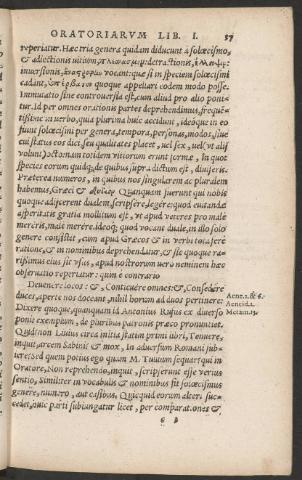 ORATORIARVM LIB. I. 37
reperiatur. Hæc tria genera quidam diducunt à solœcismo,
& adiectionis uitium, πλεονασμὸν: detractionis, ἔλλειψιν:
inuersionis, ἀναστροφὴν uocant: quæ si in speciem solœcismi
cadant, ὑπέρβατον quoque appellari eodem modo posse.
Immutatio sine controuersia est, cum aliud pro alio poni-
tur. Id per omnes orationis partes deprehendimus, frequē-
tissime in uerbo, quia plurima huic accidunt, ideóque in eo
fiunt solœcismi per genera, tempora, personas, modos, siue
cui status eos dici, seu qualitates placet, uel sex, uel ut alij
uolunt) octo: nam totidem uitiorum erunt formæ, In quot
species eorum quidq; de quibus supra dictum est, diuiseris.
Præterea numeros, in quibus nos singularem ac pluralem
habemus, Græci & δυϊκόν. Quanquam fuerunt qui nobis
quoque adijcerent dualem, scripsere, legere: quod euitandæ
asperitatis gratia mollitum est, ut apud ueteres pro male
mereris, male merêre. ideoq; quod uocant duale, in illo solo
genere consistit, cum apud Græcos & in uerbi tota ferè
ratione, & in nominibus deprehendatur, & sic quoque ra-
rißimus eius sit usus, apud nostrorum uero neminem hæc
obseruatio reperiatur: quin è contrario
Deuenere locos: &, Conticuêre omnes: &, Consedêre
duces, aperte nos doceant, nihil horum ad duos pertinere:
Aene. 1. & 6.
Aeneid. 2.
Metam. 13.
Dixere quoque, quanquam id Antonius Rufus ex diuerso
ponit exemplum, de pluribus patronis præco pronuntiet.
Quid? non Liuius circa initia statim primi libri, Tenuere,
inquit, arcem Sabini: & mox, In aduersum Romani sub-
iere: Sed quem potius ego quàm M. Tullium sequar? qui in
Oratore, Non reprehendo, inquit, scripserunt: esse uerius
sentio, Similiter in uocabulis & nominibus fit solœcismus
genere, numero, aut casibus, Quicquid eorum alteri suc-
cedet, huic parti subiungatur licet, per comparationes &